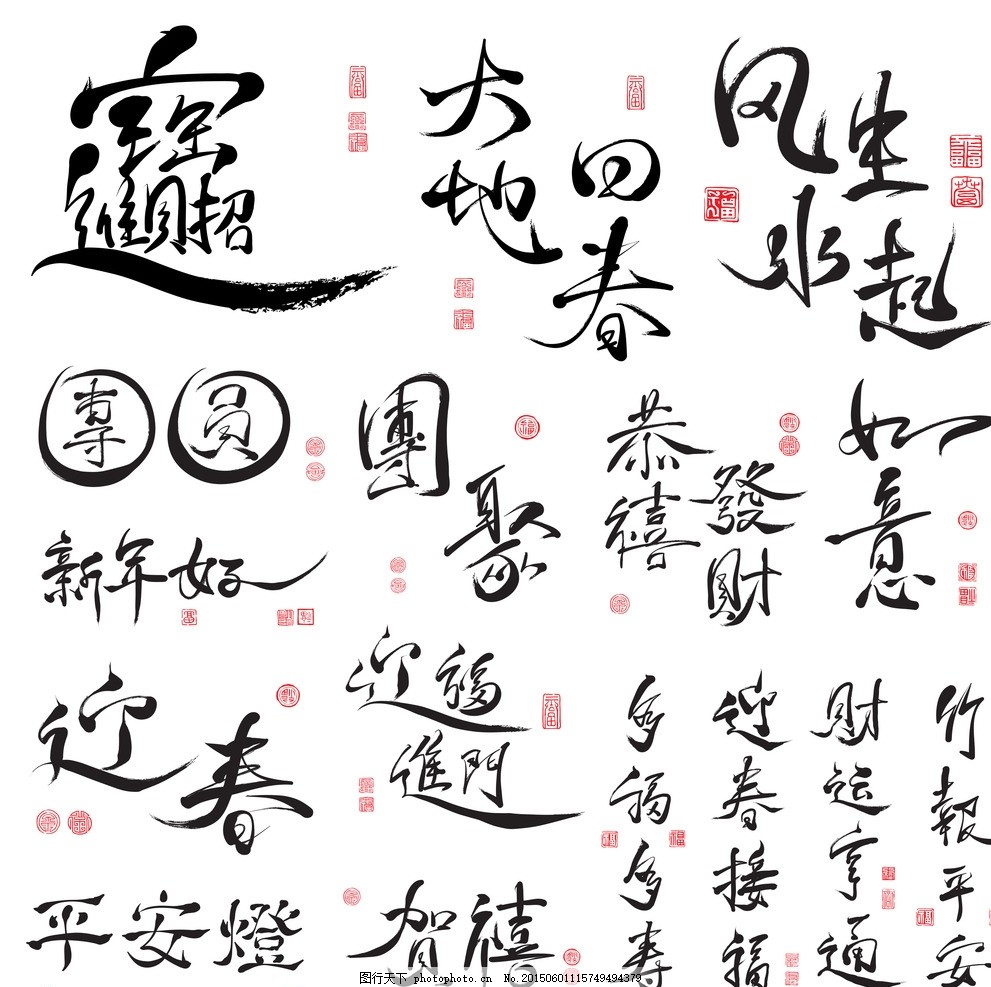 招財進寶
大地
回春
风生
水起
團圓
團聚
恭禧
發財
如意
新年好
迎春
迎福
進門
多福多寿
迎春接福
財运亨通
竹報平安
平安燈
贺禧
图行天下 photophoto.cn No.20150601115749494379